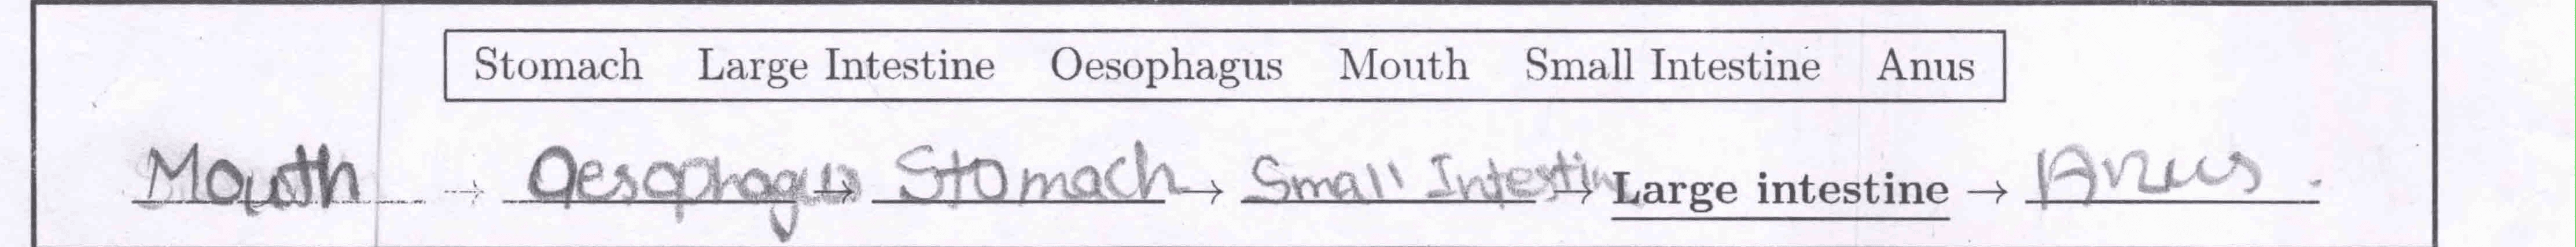 Stomach Large Intestine Oesophagus Mouth Small Intestine Anus
Mouth → Oesophagus → Stomach → Small Intestin → Large intestine → Anus.